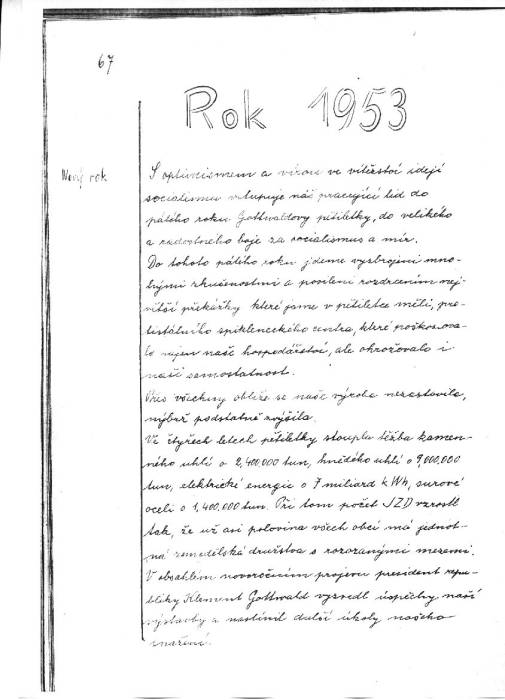 67
Rok 1953
Nový rok
S optimismem a vírou ve vítězství idejí
socialismu vstupuje náš pracující lid do
pátého roku Gottwaldovy pětiletky, do velikého
a radostného boje za socialismus a mír.
Do tohoto pátého roku jdeme vyzbrojeni mno-
hými zkušenostmi a posíleni rozdrcením nej-
větší překážky které jsme v pětiletce měli, pro-
tistátního spikleneckého centra, které poškozova-
lo nejen naše hospodářství, ale ohrožovalo i
naši samostatnost.
Přes všechny obtíže se naše výroba nezastavila,
nýbrž podstatně zvýšila.
Ve čtyřech letech pětiletky stoupla těžba kamen-
ného uhlí o 2,400.000 tun, hnědého uhlí o 9,000.000
tun, elektrické energie o 7 miliard kWh, surové
oceli o 1,400.000 tun. Při tom počet JZD vzrostl
tak, že už asi polovina všech obcí má jednot-
ná zemědělská družstva s rozoranými mezemi.
V obsáhlém novoročním projevu president repu-
bliky Klement Gottwald vyzvedl úspěchy naší
výstavby a nastínil další úkoly našeho
snažení.